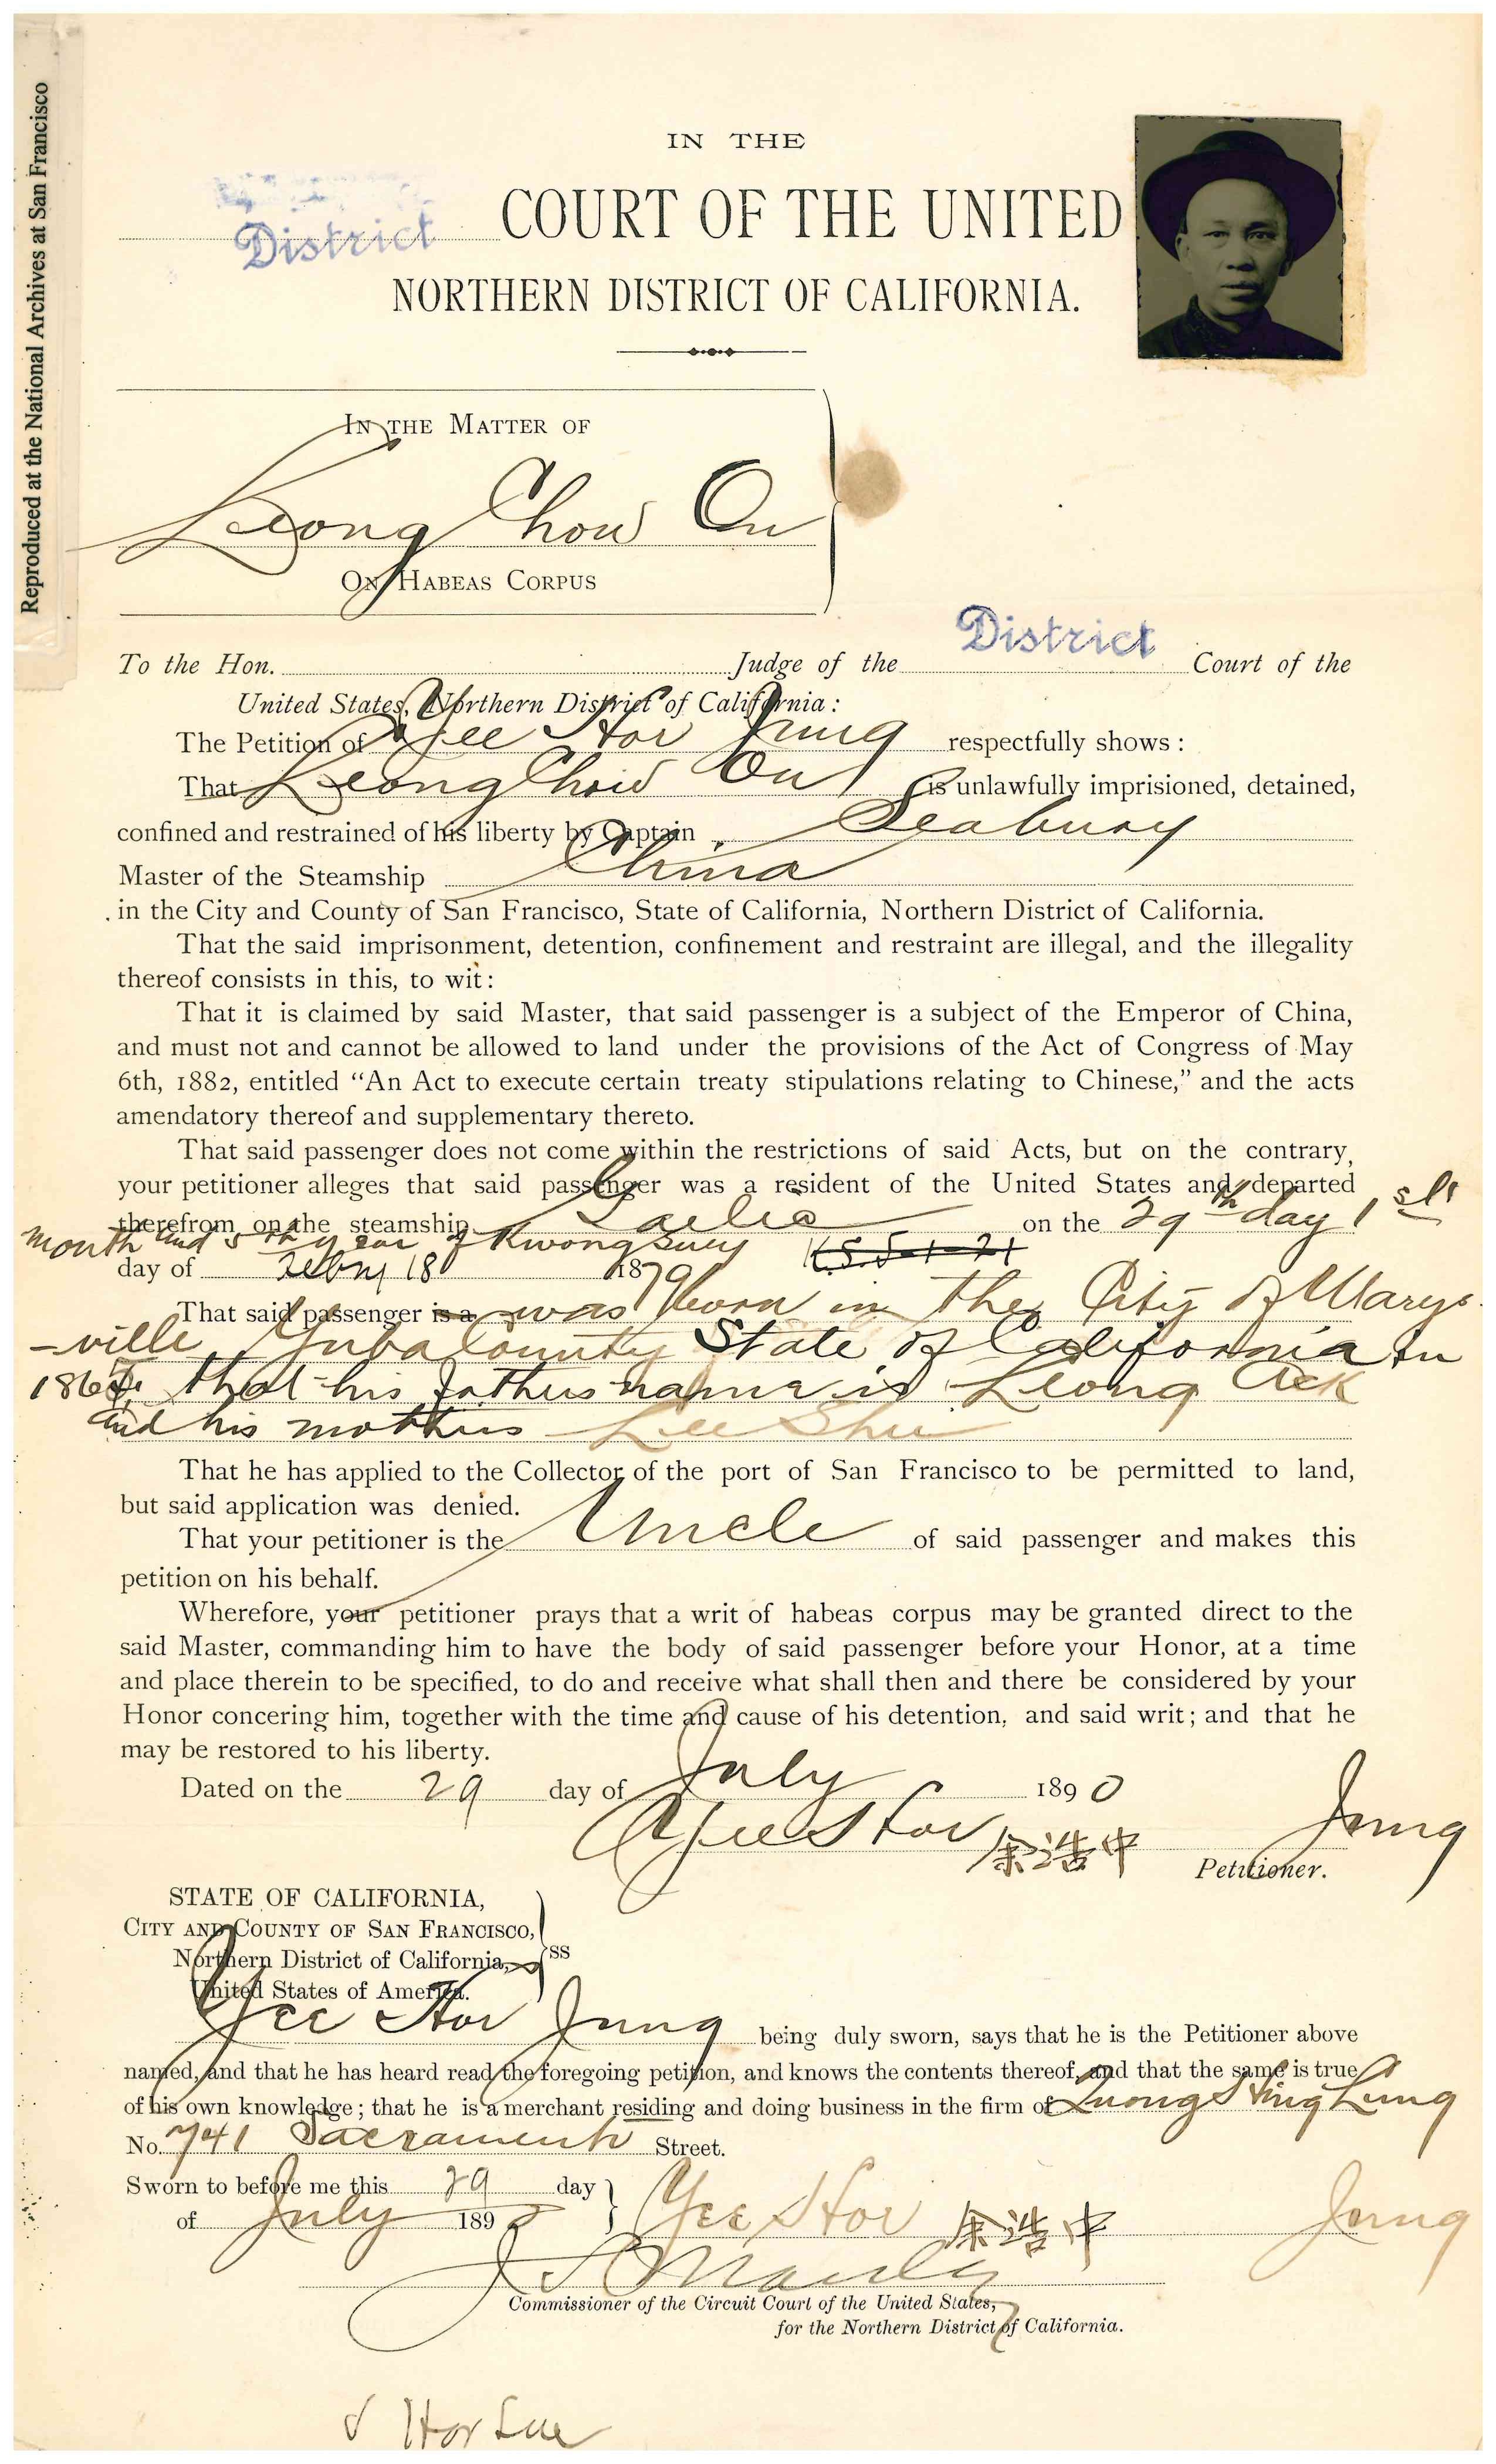 Reproduced at the National Archives at San Francisco
IN THE
District COURT OF THE UNITED
NORTHERN DISTRICT OF CALIFORNIA.
IN THE MATTER OF
Leong Chow On
ON HABEAS CORPUS
To the Hon. Judge of the District Court of the
United States, Northern District of California:
The Petition of Yee Hor Jung respectfully shows:
That Leong Chow On is unlawfully imprisioned, detained,
confined and restrained of his liberty by Captain Seabury
Master of the Steamship China
in the City and County of San Francisco, State of California, Northern District of California.
That the said imprisonment, detention, confinement and restraint are illegal, and the illegality
thereof consists in this, to wit:
That it is claimed by said Master, that said passenger is a subject of the Emperor of China,
and must not and cannot be allowed to land under the provisions of the Act of Congress of May
6th, 1882, entitled “An Act to execute certain treaty stipulations relating to Chinese,” and the acts
amendatory thereof and supplementary thereto.
That said passenger does not come within the restrictions of said Acts, but on the contrary,
your petitioner alleges that said passenger was a resident of the United States and departed
therefrom on the steamship Gaelic on the 29th day 1st
month and 5th year of Kwong Suey
day of Febry 18 1879
That said passenger is a was born in the City of Marys
-ville Yuba County State of California in
that his fathers name is Leong Ack
and his mothers Lee Shee
That he has applied to the Collector of the port of San Francisco to be permitted to land,
but said application was denied.
That your petitioner is the Uncle of said passenger and makes this
petition on his behalf.
Wherefore, your petitioner prays that a writ of habeas corpus may be granted direct to the
said Master, commanding him to have the body of said passenger before your Honor, at a time
and place therein to be specified, to do and receive what shall then and there be considered by your
Honor concering him, together with the time and cause of his detention, and said writ; and that he
may be restored to his liberty.
Dated on the 29 day of July 1890
Yee Hor 余浩中 Jung
Petitioner.
STATE OF CALIFORNIA,
CITY AND COUNTY OF SAN FRANCISCO,
Northern District of California, SS
United States of America.
Yee Hor Jung being duly sworn, says that he is the Petitioner above
named, and that he has heard read the foregoing petition, and knows the contents thereof, and that the same is true
of his own knowledge; that he is a merchant residing and doing business in the firm of Quong Hing Lung
No. 741 Sacramento Street.
Sworn to before me this 29 day
of July 1890 Yee Hor 余浩中 Jung
Commissioner of the Circuit Court of the United States,
for the Northern District of California.
Hor Lue